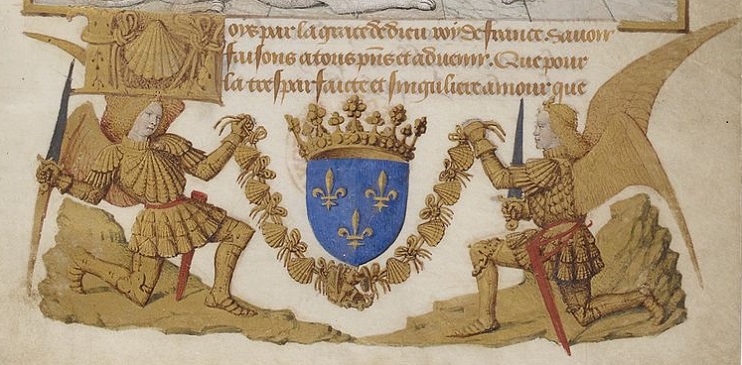 Loys par la grace de dieu roy de france. Savoir
faisons a tous pñs et advenir. Que pour
la tresparfaicte et singuliere amour que